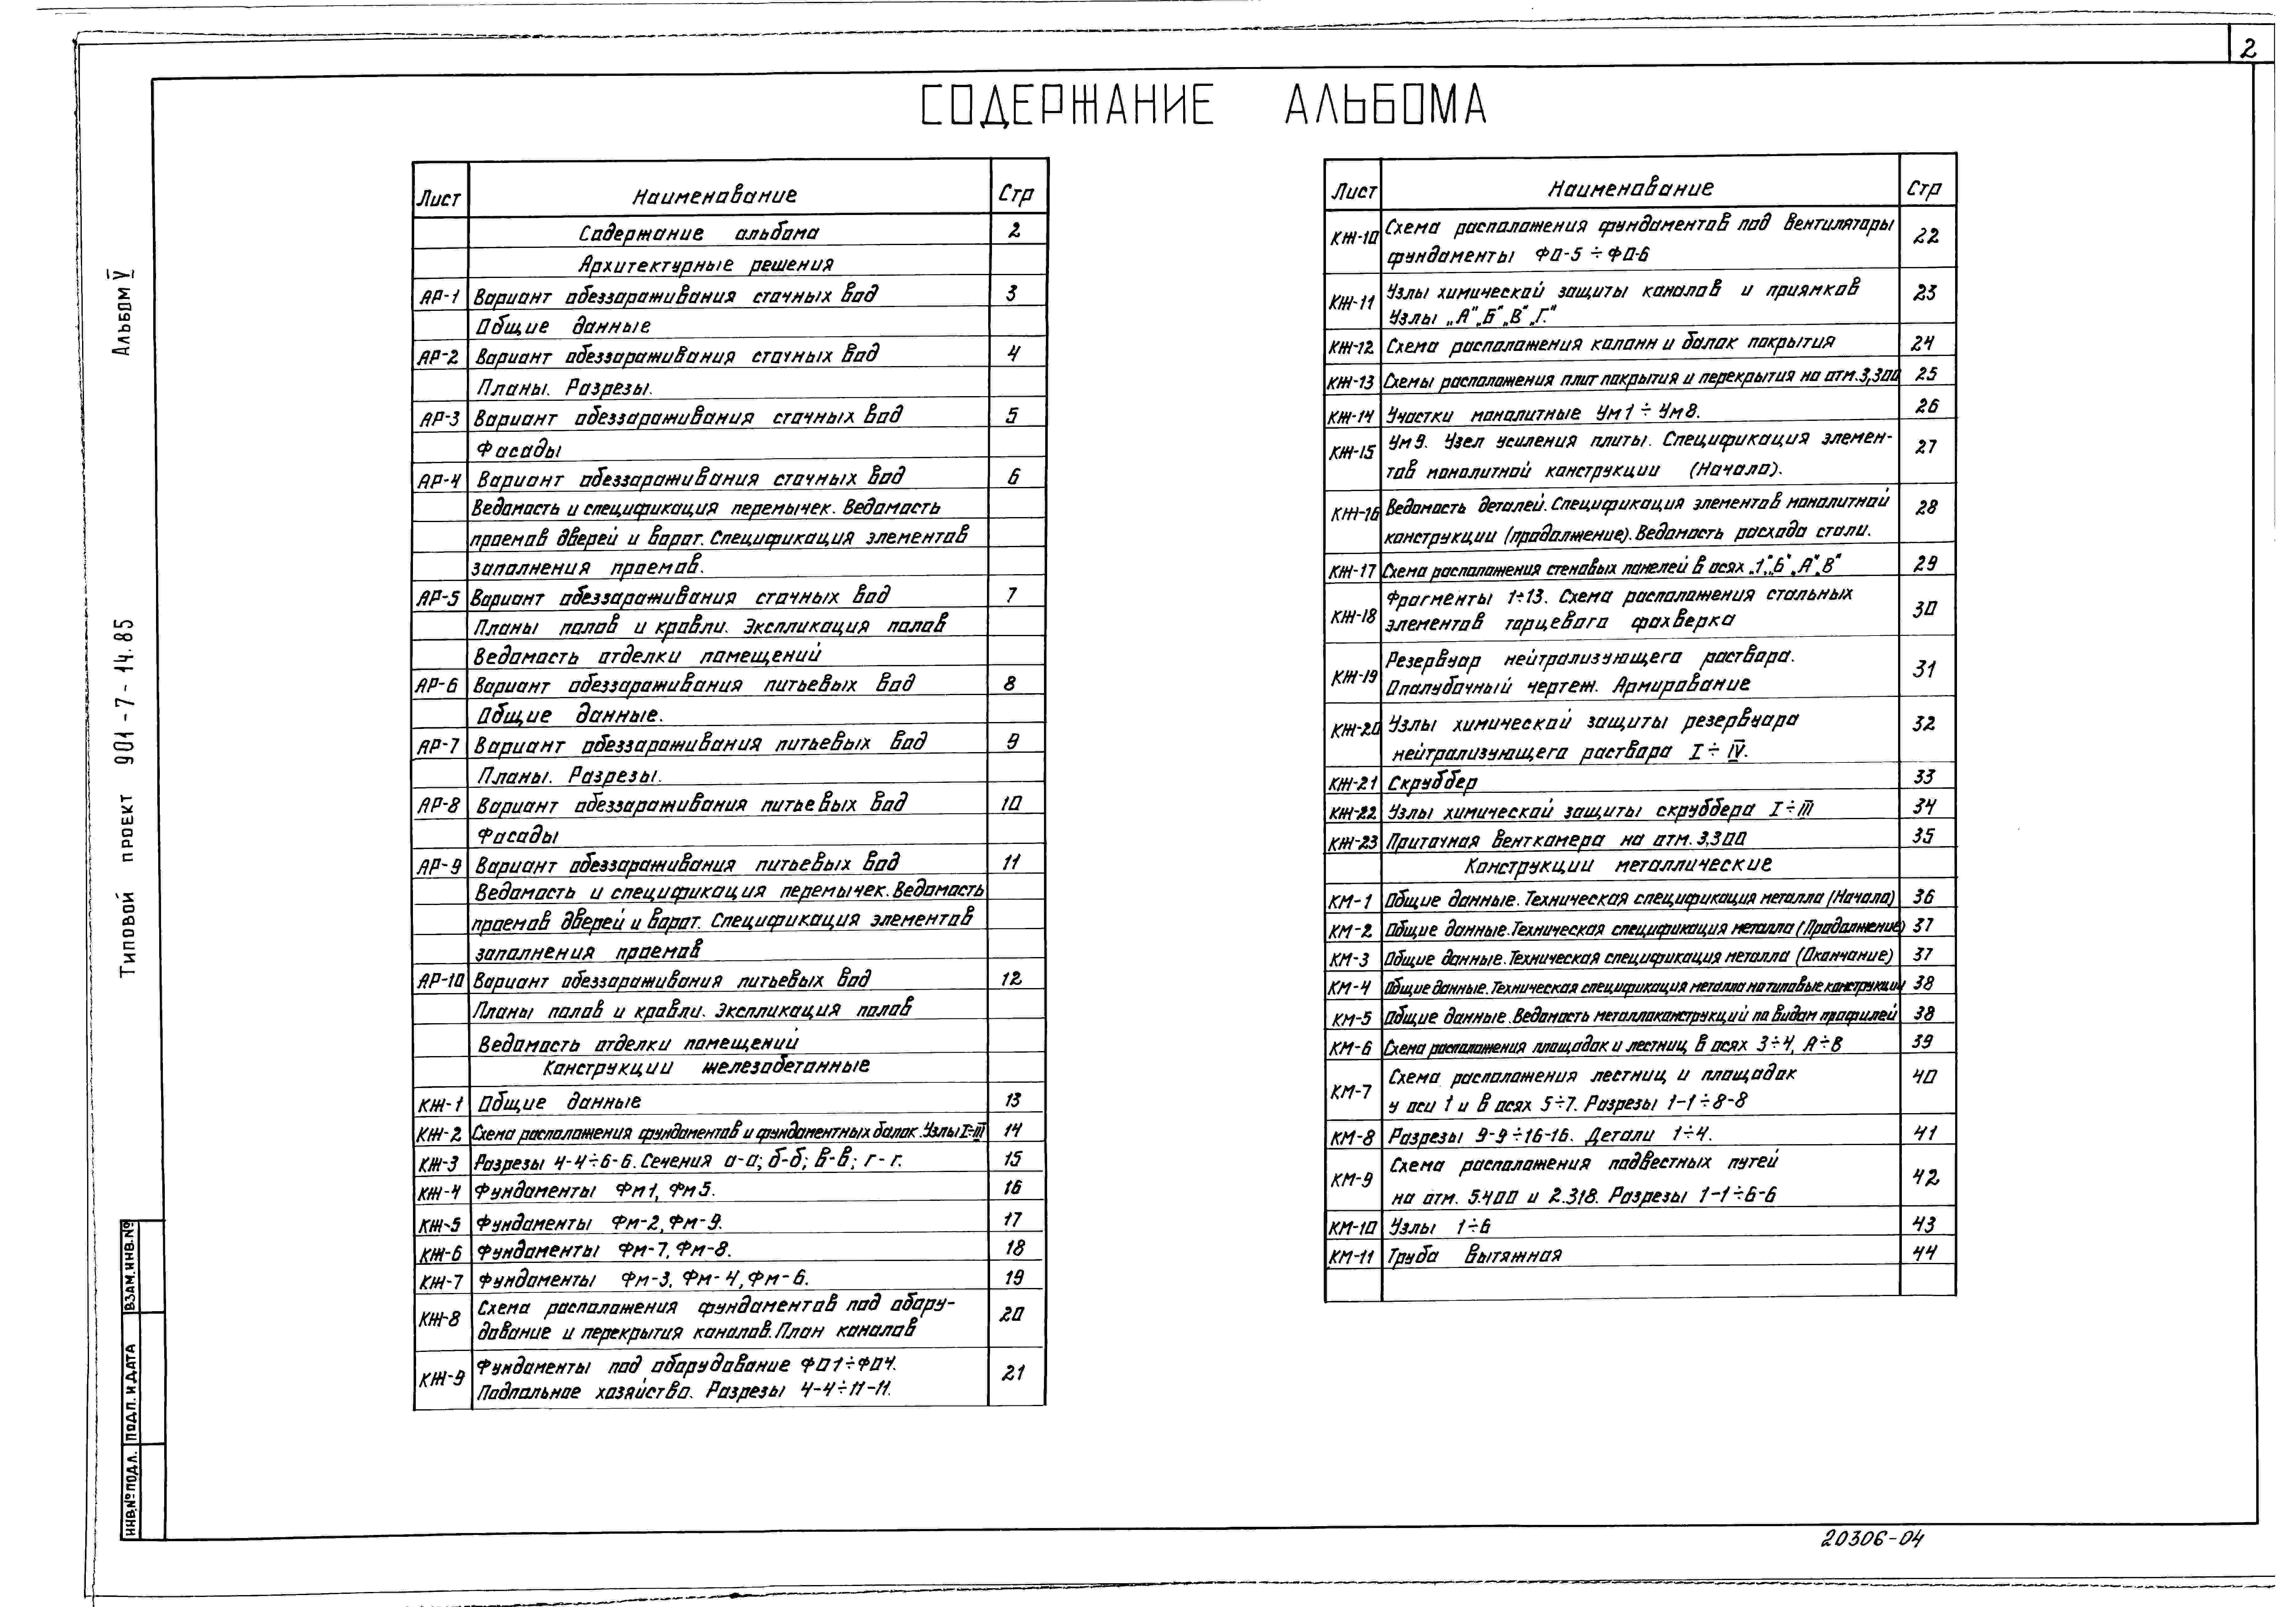 2
СОДЕРЖАНИЕ АЛЬБОМА
Альбом V
Типовой проект 901-7-14.85
Лист Наименование Стр
Содержание альбома 2
Архитектурные решения
АР-1 Вариант обеззараживания сточных вод 3
Общие данные
АР-2 Вариант обеззараживания сточных вод 4
Планы. Разрезы.
АР-3 Вариант обеззараживания сточных вод 5
Фасады
АР-4 Вариант обеззараживания сточных вод 6
Ведомость и спецификация перемычек. Ведомость
проемов дверей и ворот. Спецификация элементов
заполнения проемов.
АР-5 Вариант обеззараживания сточных вод 7
Планы полов и кровли. Экспликация полов
Ведомость отделки помещений
АР-6 Вариант обеззараживания питьевых вод 8
Общие данные.
АР-7 Вариант обеззараживания питьевых вод 9
Планы. Разрезы.
АР-8 Вариант обеззараживания питьевых вод 10
Фасады
АР-9 Вариант обеззараживания питьевых вод 11
Ведомость и спецификация перемычек. Ведомость
проемов дверей и ворот. Спецификация элементов
заполнения проемов
АР-10 Вариант обеззараживания питьевых вод 12
Планы полов и кровли. Экспликация полов
Ведомость отделки помещений
Конструкции железобетонные
КЖ-1 Общие данные 13
КЖ-2 Схема расположения фундаментов и фундаментных балок. Узлы I÷III 14
КЖ-3 Разрезы 4-4÷6-6. Сечения а-а; б-б; в-в; г-г. 15
КЖ-4 Фундаменты Фм1, Фм5. 16
КЖ-5 Фундаменты Фм-2, Фм-9. 17
КЖ-6 Фундаменты Фм-7, Фм-8. 18
КЖ-7 Фундаменты Фм-3, Фм-4, Фм-6. 19
КЖ-8 Схема расположения фундаментов под обору-
дование и перекрытия каналов. План каналов 20
КЖ-9 Фундаменты под оборудование ФО1÷ФО4.
Подпольное хозяйство. Разрезы 4-4÷11-11. 21
Лист Наименование Стр
КЖ-10 Схема расположения фундаментов под вентиляторы
фундаменты ФО-5÷ФО-6 22
КЖ-11 Узлы химической защиты каналов и приямков
Узлы „А", „Б", „В", „Г." 23
КЖ-12 Схема расположения колонн и балок покрытия 24
КЖ-13 Схемы расположения плит покрытия и перекрытия на отм. 3,300 25
КЖ-14 Участки монолитные Ум1÷Ум8. 26
КЖ-15 Ум9. Узел усиления плиты. Спецификация элемен-
тов монолитной конструкции (Начало). 27
КЖ-16 Ведомость деталей. Спецификация элементов монолитной
конструкции (продолжение). Ведомость расхода стали. 28
КЖ-17 Схема расположения стеновых панелей в осях „1", „6" „А", „В" 29
КЖ-18 Фрагменты 1÷13. Схема расположения стальных
элементов торцевого фахверка 30
КЖ-19 Резервуар нейтрализующего раствора.
Опалубочный чертеж. Армирование 31
КЖ-20 Узлы химической защиты резервуара
нейтрализующего раствора I÷IV. 32
КЖ-21 Скруббер 33
КЖ-22 Узлы химической защиты скруббера I÷III 34
КЖ-23 Приточная венткамера на отм. 3,300 35
Конструкции металлические
КМ-1 Общие данные. Техническая спецификация металла (Начало) 36
КМ-2 Общие данные. Техническая спецификация металла (Продолжение) 37
КМ-3 Общие данные. Техническая спецификация металла (Окончание) 37
КМ-4 Общие данные. Техническая спецификация металла на типовые конструкции 38
КМ-5 Общие данные. Ведомость металлоконструкций по видам профилей 38
КМ-6 Схема расположения площадок и лестниц в осях 3÷4, А÷В 39
КМ-7 Схема расположения лестниц и площадок
у оси 1 и в осях 5÷7. Разрезы 1-1÷8-8 40
КМ-8 Разрезы 9-9÷16-16. Детали 1÷4. 41
КМ-9 Схема расположения подвестных путей
на отм. 5.400 и 2.318. Разрезы 1-1÷6-6 42
КМ-10 Узлы 1÷6 43
КМ-11 Труба вытяжная 44
ИНВ.№ПОДЛ. ПОДП. И ДАТА ВЗАМ.ИНВ.№
20306-04